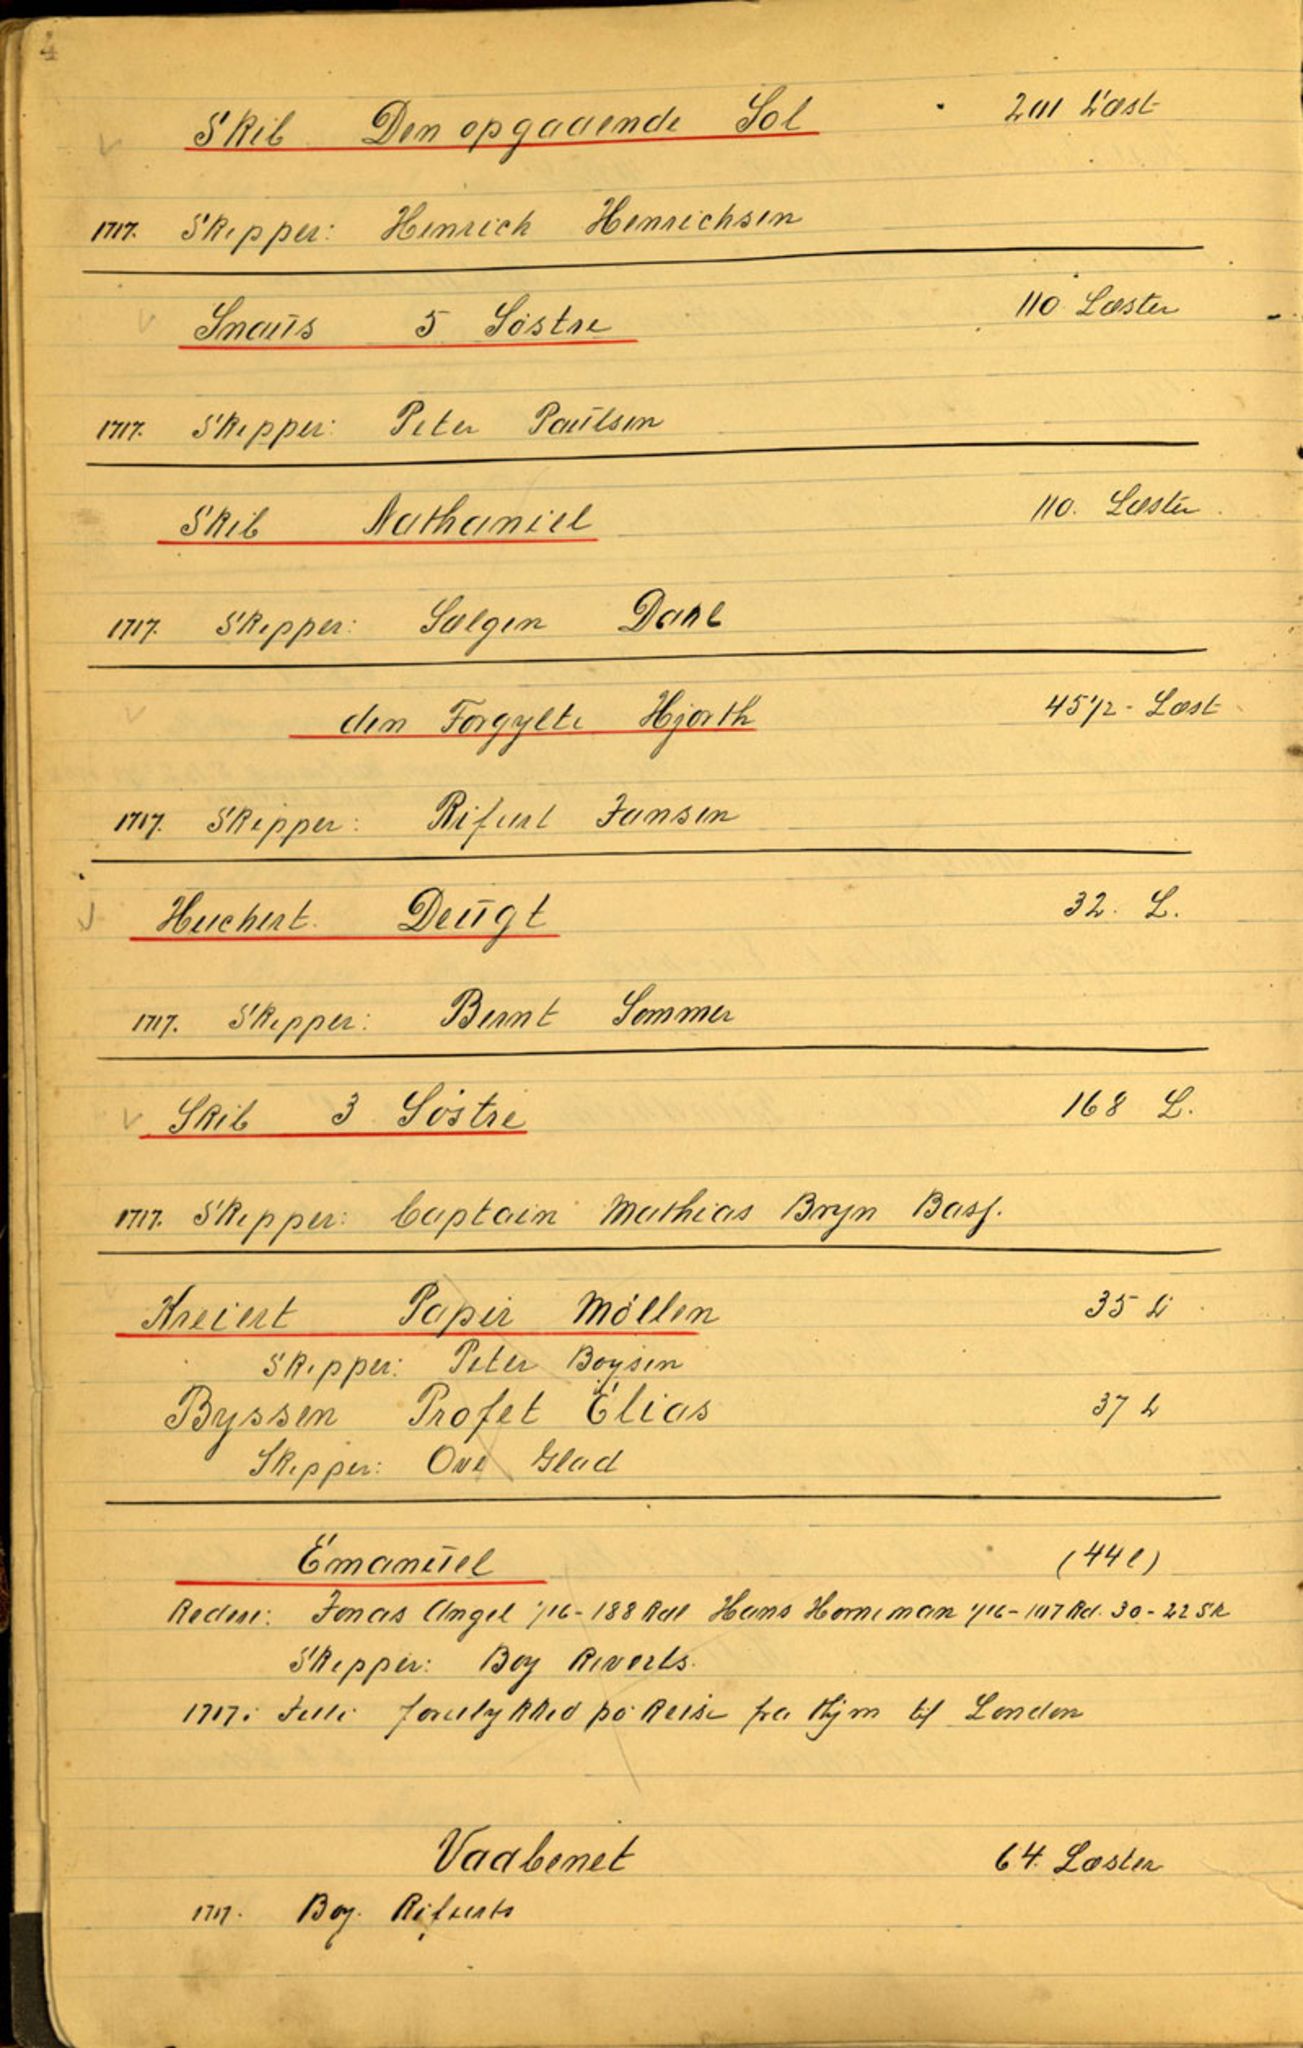 4
Skib Den opgaaende Sol 201 Læst
1717. Skipper: Henrich Henrichsen
Snaus 5 Söstre 110 Læster
1717. Skipper: Peter Paulsen
Skib Nathaniel 110. Læster
1717. Skipper: Salgen Dahl
den Forgylte Hjorth 45 1/2 - Læst
1717. Skipper: Rifert Jansen
Huchert. Deugt 32. L.
1717. Skipper: Bernt Sommer
Skib 3 Söstre 168 L.
1717. Skipper: Captain Mathias Bryn Basf.
Kreiert Papir Möllen 35 L
Skipper: Peter Boysen
Byssen Profet Elias 37 L
Skipper: Ove Glad
Emanuel (44 l)
Redere: Jonas Angel 1/16 - 188 Rdl Hans Horneman 1/16 - 107 Rd. 30 - 22 Sk
Skipper: Boy Reverts.
1717: Juli forulykked på Reise fra Thjm til London
Vaabenet 64. Læster
1717. Boy. Rifverts